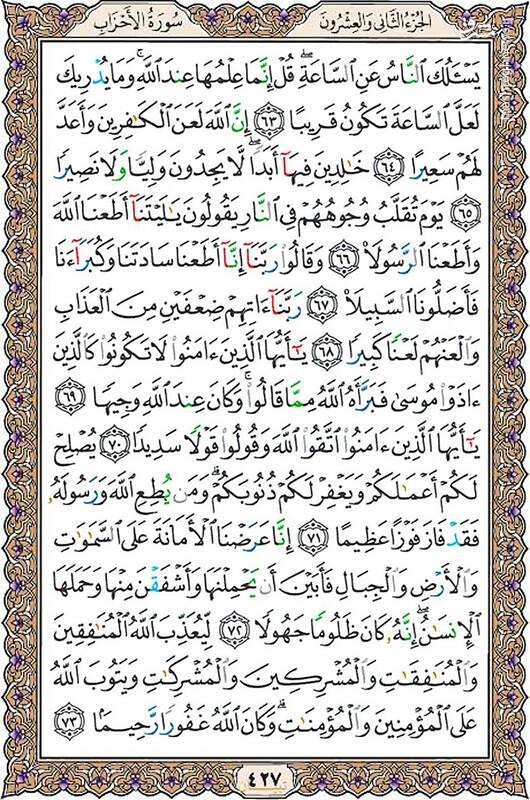 الجزء الثاني والعشرون
سورة الأحزاب
يَسْـَٔلُكَ ٱلنَّاسُ عَنِ ٱلسَّاعَةِ ۖ قُلْ إِنَّمَا عِلْمُهَا عِندَ ٱللَّهِ ۚ وَمَا يُدْرِيكَ
لَعَلَّ ٱلسَّاعَةَ تَكُونُ قَرِيبًا ﴿٦٣﴾ إِنَّ ٱللَّهَ لَعَنَ ٱلْكَـٰفِرِينَ وَأَعَدَّ
لَهُمْ سَعِيرًا ﴿٦٤﴾ خَـٰلِدِينَ فِيهَآ أَبَدًا ۖ لَّا يَجِدُونَ وَلِيًّا وَلَا نَصِيرًا
﴿٦٥﴾ يَوْمَ تُقَلَّبُ وُجُوهُهُمْ فِى ٱلنَّارِ يَقُولُونَ يَـٰلَيْتَنَآ أَطَعْنَا ٱللَّهَ
وَأَطَعْنَا ٱلرَّسُولَا۠ ﴿٦٦﴾ وَقَالُوا۟ رَبَّنَآ إِنَّآ أَطَعْنَا سَادَتَنَا وَكُبَرَآءَنَا
فَأَضَلُّونَا ٱلسَّبِيلَا۠ ﴿٦٧﴾ رَبَّنَآ ءَاتِهِمْ ضِعْفَيْنِ مِنَ ٱلْعَذَابِ
وَٱلْعَنْهُمْ لَعْنًا كَبِيرًا ﴿٦٨﴾ يَـٰٓأَيُّهَا ٱلَّذِينَ ءَامَنُوا۟ لَا تَكُونُوا۟ كَٱلَّذِينَ
ءَاذَوْا۟ مُوسَىٰ فَبَرَّأَهُ ٱللَّهُ مِمَّا قَالُوا۟ ۚ وَكَانَ عِندَ ٱللَّهِ وَجِيهًا ﴿٦٩﴾
يَـٰٓأَيُّهَا ٱلَّذِينَ ءَامَنُوا۟ ٱتَّقُوا۟ ٱللَّهَ وَقُولُوا۟ قَوْلًا سَدِيدًا ﴿٧٠﴾ يُصْلِحْ
لَكُمْ أَعْمَـٰلَكُمْ وَيَغْفِرْ لَكُمْ ذُنُوبَكُمْ ۗ وَمَن يُطِعِ ٱللَّهَ وَرَسُولَهُۥ
فَقَدْ فَازَ فَوْزًا عَظِيمًا ﴿٧١﴾ إِنَّا عَرَضْنَا ٱلْأَمَانَةَ عَلَى ٱلسَّمَـٰوَٰتِ
وَٱلْأَرْضِ وَٱلْجِبَالِ فَأَبَيْنَ أَن يَحْمِلْنَهَا وَأَشْفَقْنَ مِنْهَا وَحَمَلَهَا
ٱلْإِنسَـٰنُ ۖ إِنَّهُۥ كَانَ ظَلُومًا جَهُولًا ﴿٧٢﴾ لِّيُعَذِّبَ ٱللَّهُ ٱلْمُنَـٰفِقِينَ
وَٱلْمُنَـٰفِقَـٰتِ وَٱلْمُشْرِكِينَ وَٱلْمُشْرِكَـٰتِ وَيَتُوبَ ٱللَّهُ
عَلَى ٱلْمُؤْمِنِينَ وَٱلْمُؤْمِنَـٰتِ ۗ وَكَانَ ٱللَّهُ غَفُورًا رَّحِيمًۢا ﴿٧٣﴾
٤٢٧